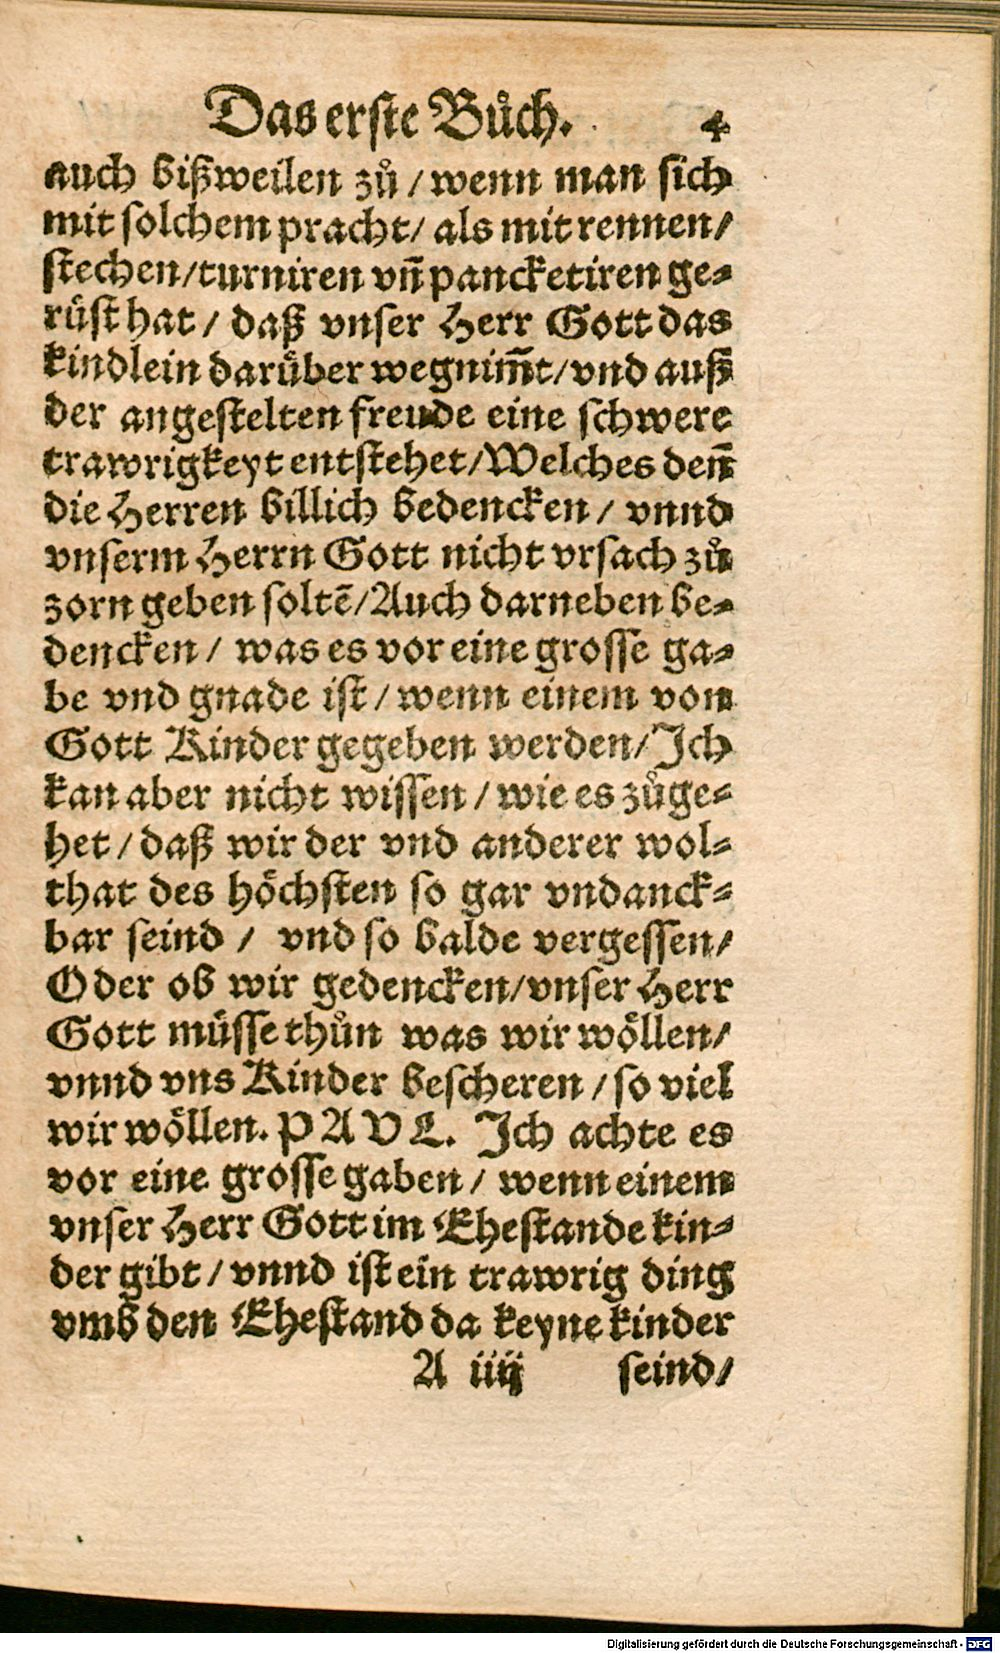 Das erste Buͦch. 4
auch bißweilen zuͦ / wenn man sich
mit solchem pracht / als mit rennen /
stechen / turniren vn̄ pancketiren ge⸗
ruͤst hat / daß vnser Herr Gott das
kindlein daruͤber wegnim̄t / vnd auß
der angestelten freude eine schwere
trawrigkeyt entstehet / Welches den̄
die Herren billich bedencken / vnnd
vnserm Herrn Gott nicht vrsach zuͦ
zorn geben soltē / Auch darneben be⸗
dencken / was es vor eine grosse ga⸗
be vnd gnade ist / wenn einem von
Gott Kinder gegeben werden / Ich
kan aber nicht wissen / wie es zuͦge⸗
het / daß wir der vnd anderer wol⸗
that des hoͤchsten so gar vndanck⸗
bar seind / vnd so balde vergessen /
Oder ob wir gedencken / vnser Herr
Gott muͤsse thuͦn was wir woͤllen /
vnnd vns Kinder bescheren / so viel
wir woͤllen. PAVL. Ich achte es
vor eine grosse gaben / wenn einem
vnser Herr Gott im Ehestande kin⸗
der gibt / vnnd ist ein trawrig ding
vmb den Ehestand da keyne kinder
A iiij seind /
Digitalisierung gefördert durch die Deutsche Forschungsgemeinschaft - DFG